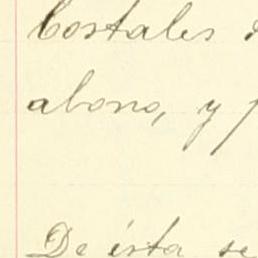 Costales
abono, y
De ésta se